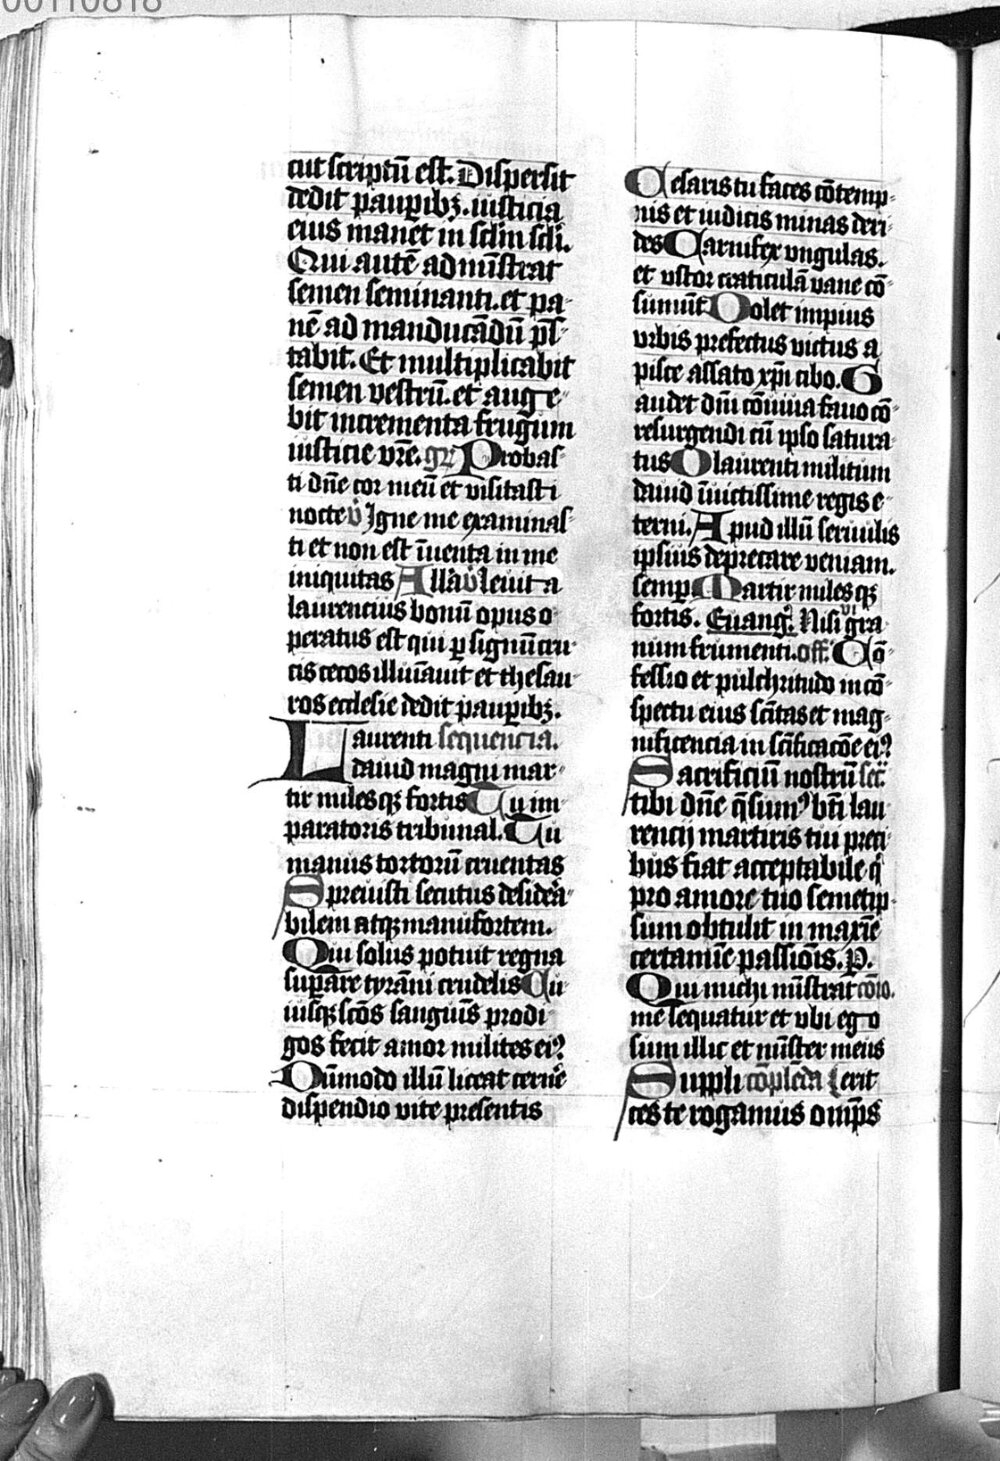 00110818
cut scriptū est. Dispersit
dedit paupibꝫ. iusticia
eius manet in sclm̄ scli.
Qui autē admīstrat
semen seminanti. et pa-
nē ad manducādū p̄s-
tabit. Et multiplicabit
semen vestrū. et auge-
bit incrementa frugum
iusticie vr̄e. gr̄ Probas-
ti dn̄e cor meū et visitasti
nocte v̄ Igne me examinas-
ti et non est īuenta in me
iniquitas Alla v̄ leuita
laurencius bonū opus o-
peratus est qui ꝑ signū cru-
cis cecos illuīauit et thesau-
ros ecclesie dedit pauꝑibꝫ.
Laurenti sequencia.
dauid magni mar-
tir milesqꝫ fortis Tu im-
paratoris tribunal. Tu
manus tortorū cruentas
Spreuisti secutus desiderā-
bilem atqꝫ manu fortem.
Qui solus potuit regna
suꝑare tyrāni crudelis Cu-
iusqꝫ scōs sanguīs prodi-
gos fecit amor milites eiꝰ
Dūmodo illū liceat cernē
dispendio vite presentis
Cesaris tu faces cōtemp-
nis et iudicis minas deri-
des Carnifex vngulas.
et vstor craticulā vane cō-
sumūt Dolet impius
vrbis prefectus victus a
pisce assato xp̄i cibo. G
audet dn̄i cōuiua fauo cō-
resurgendi cū ipso satura-
tus O laurenti militum
dauid īuictissime regis e-
terni. Apud illū seruulis
ipsius deprecare veniam.
semꝑ Martir milesqꝫ
fortis. Euangꝰ. Nisi gra-
num frumenti. off. Cō-
fessio et pulchritudo in cō-
spectu eius sc̄itas et mag-
nificencia in sc̄ificacōe eiꝰ
Sacrificiū nostrū secr̄
tibi dn̄e q̄sumꝰ bt̄i lau-
rencij martiris tui preci-
bus fiat acceptabile q̄
pro amore tuo semetip-
sum obtulit in maxīe
certamīe passiōis. P.
Qui michi mīstrat cōio.
me sequatur et vbi ego
sum illic et mīster meus
Suppli cōplēda erit
ces te rogamus omp̄s